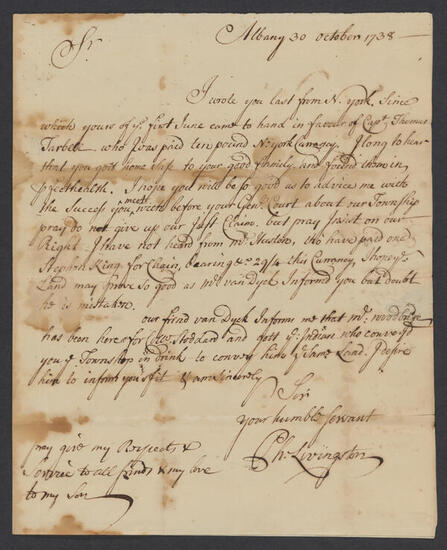 Albany 30 October 1738
Sr.
I wrote you last from N. york, Since
which yours of ye first June came to hand in favour of Capt. Thomas
Tarbell who Was paid ten pound N. york Currancy. I long to hear
that you gott home Safe to your good family, and found them in
pfect health. I hope you will be so good us to advice me with
the Success you meet with before your Genl. Court about our Township
pray do not give up our Just Claim, but pray Insist on our
Right. I have not heard from Mr.
have paid one
Stephen King for Chain, bearing &c 29/4 this Currancy,
Land may prove so good as Mr. van Dyck Informed you but doubt
he is mistaken.
our frind van Dyck Informs me that Mr. woodbridge
has been here for Coll. Stodard and gott ye Indians who convey'd
you ye Township in drink to convey him ye same Land. I desire
him to inform you of it I am Sincerely
Sir
your humble Servant
Ph: Livingston
pray give my Respects &
Service to all frinds & my love
to my Son